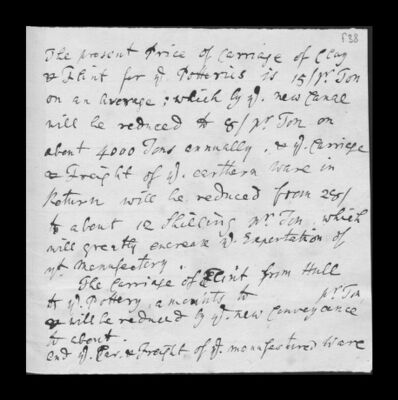 538
The present Price of Carriage of Clay
& Flint for ye. Potteries is 15/ pr. Ton
on an Average; which by ye. new Canal
will be reduced to 8/ pr. Ton on
about 4000 Tons annually, & ye. Carriage
& Freight of ye. earthern Ware in
Return will be reduced from 28/
to about 12 Shilling pr. Ton, which
will greatly encrease ye. Exportation of
yt. Manufactory.
The Carriage of Flint from Hull
to ye. Pottery, amounts to pr. Ton
& will be reduced by ye. new Conveyance
to about
and ye. Car. & Freight of ye. manufactured Ware